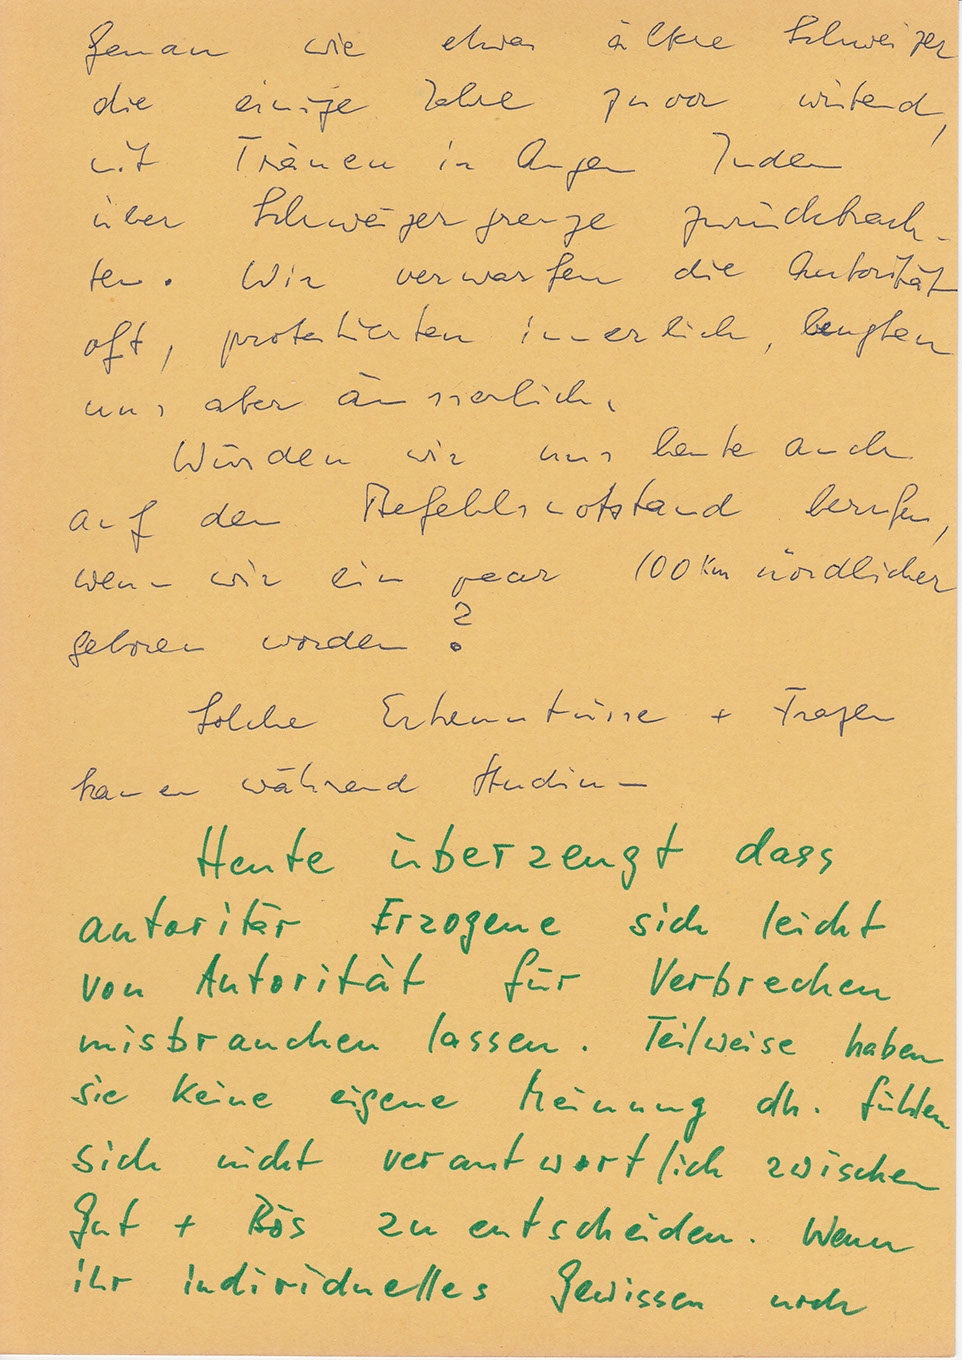 Genau wie etwas ältere Schweizer
die einige Jahre zuvor wütend,
mit Tränen in Augen Juden
über Schweizergrenze zurückbrach-
ten. Wir verwarfen die Autorität
oft, protestierten innerlich, beugten
uns aber äusserlich.
Würden wir uns heute auch
auf den Befehlsnotstand berufen,
wenn wir ein paar 100 Km nördlicher
geboren worden ?
Solche Erkenntnisse + Fragen
kamen während Studium
Heute überzeugt dass
autoritär Erzogene sich leicht
von Autorität für Verbrechen
misbrauchen lassen. Teilweise haben
sie keine eigene Meinung dh. fühlen
sich nicht verantwortlich zwischen
Gut + Bös zu entscheiden. Wenn
ihr individuelles Gewissen noch